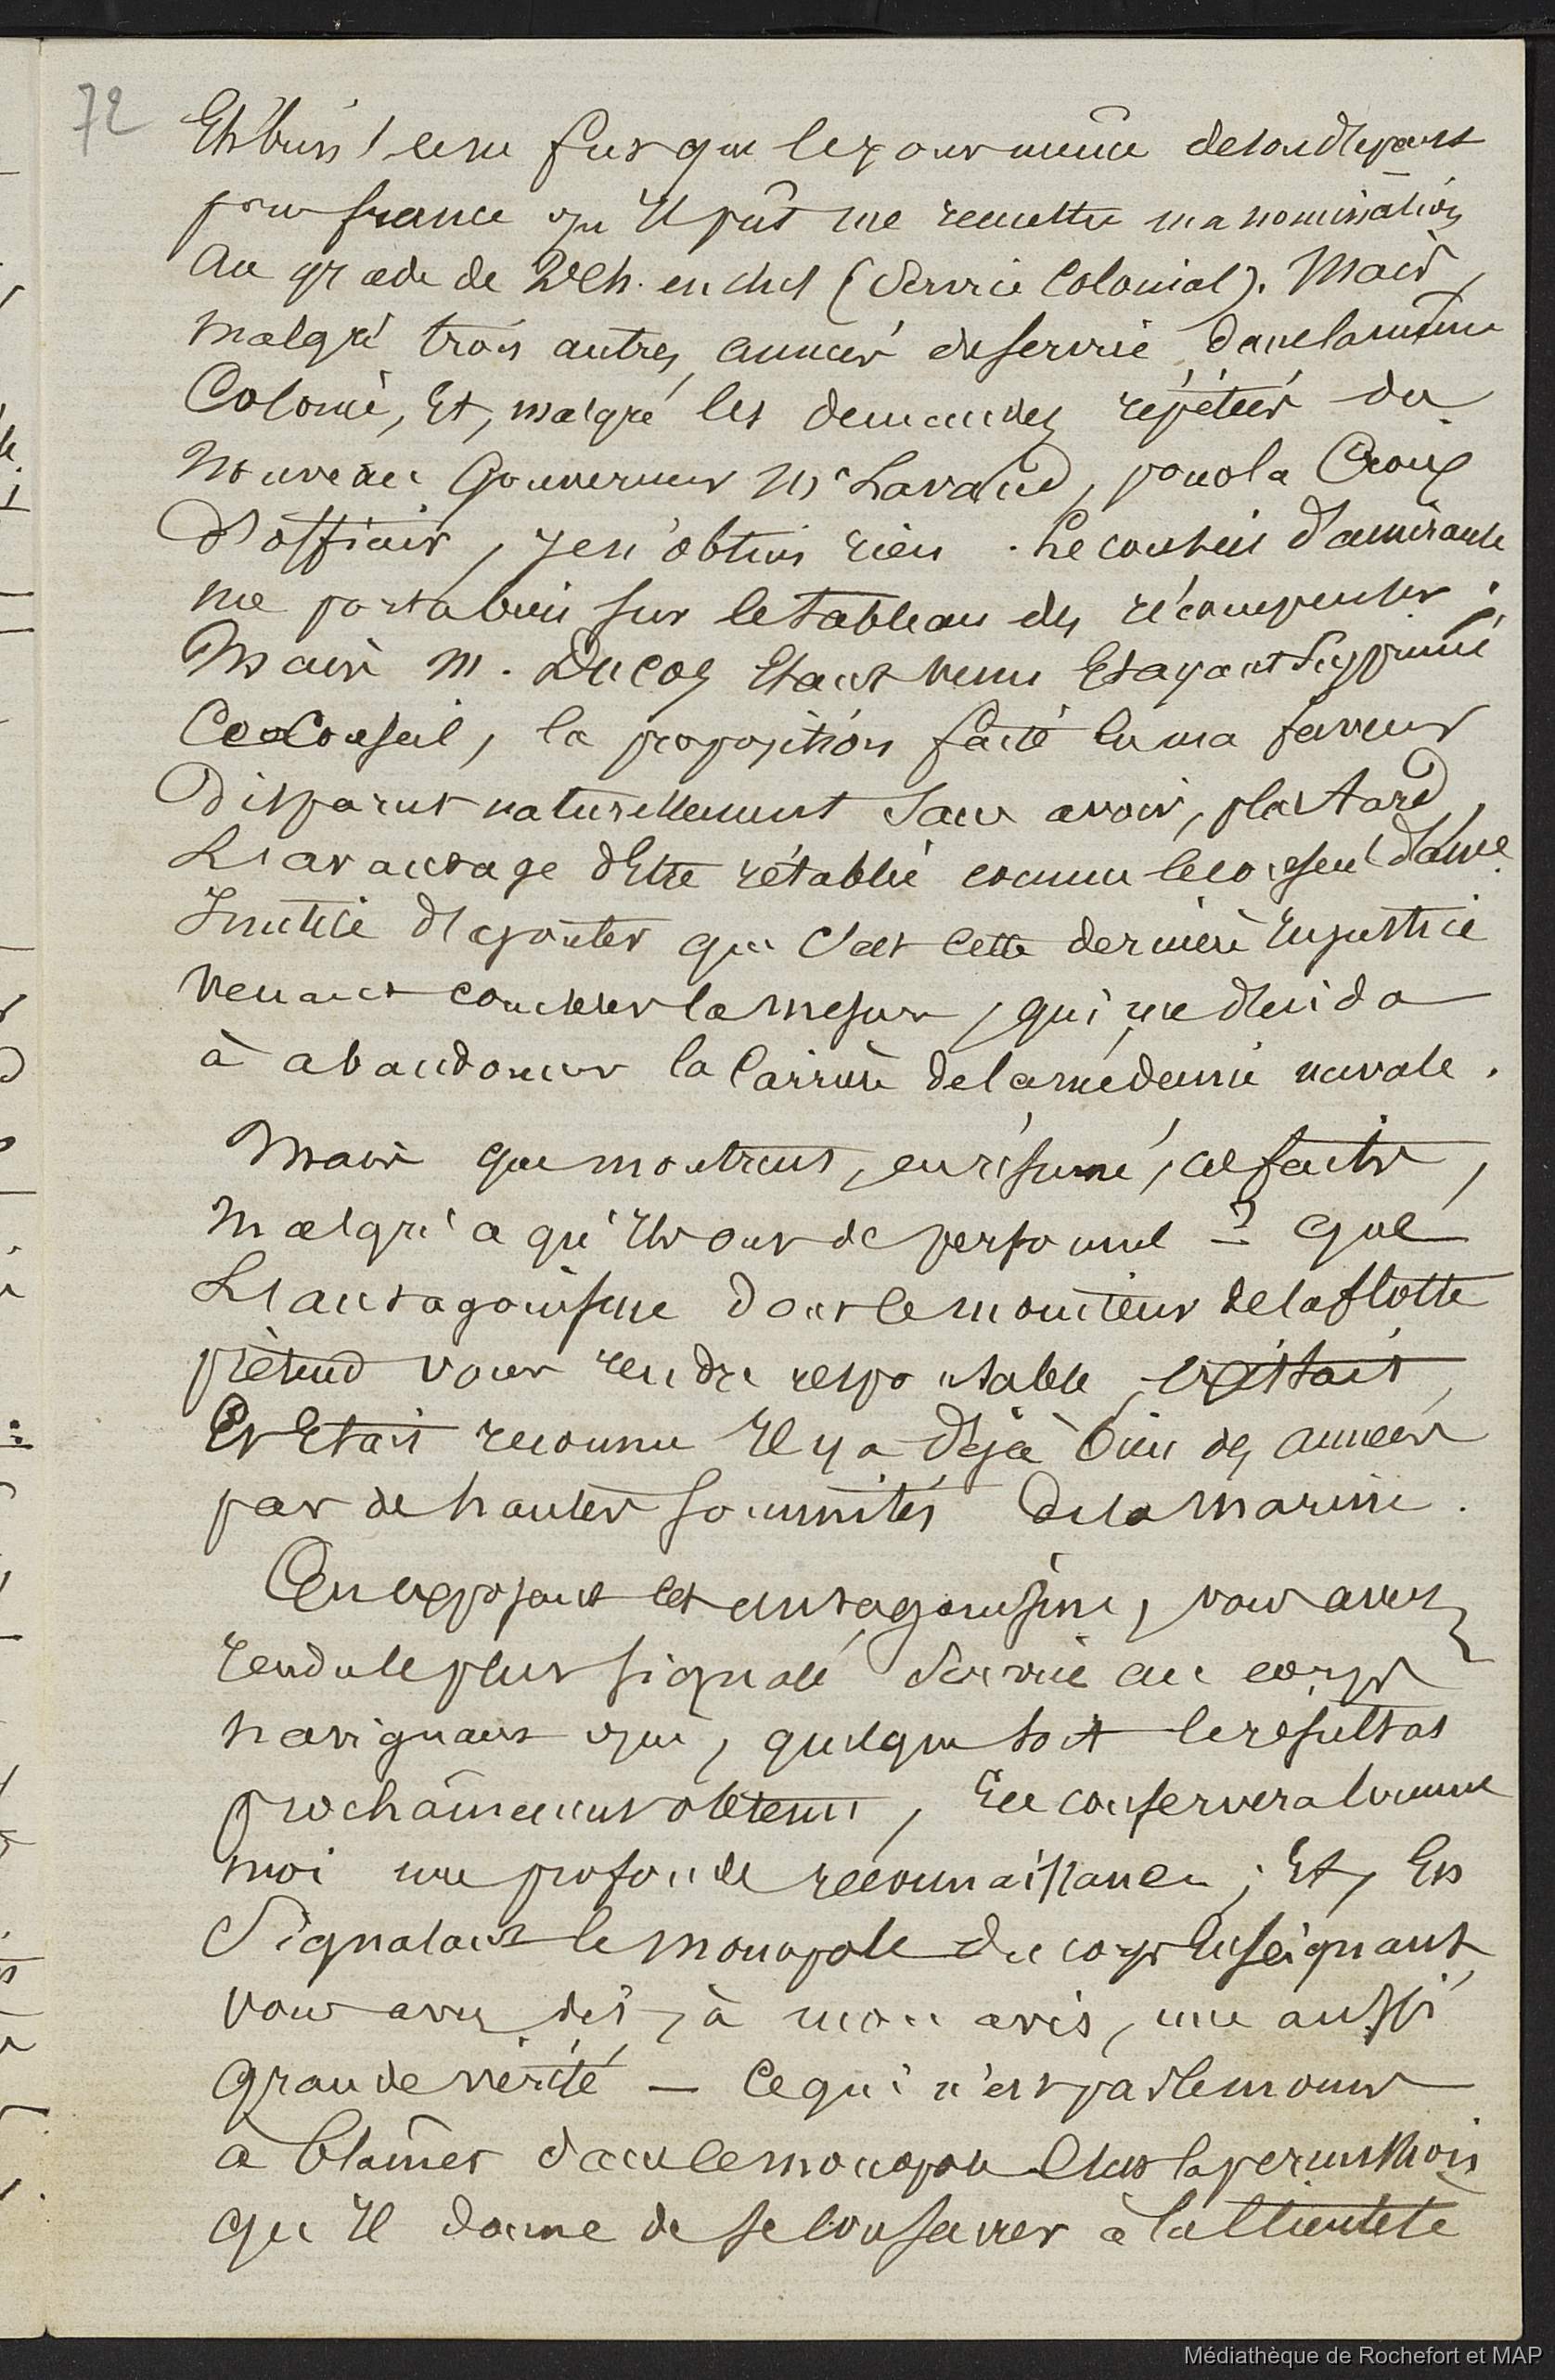 72
Eh bien ! ce ne fut que le jour même de son départ
pour france qu'Il pût me remettre ma nomination
Au grade de 2e Ch. en chef (Service Colonial). Mais,
malgré trois autres années de service dans la même
Colonie, Et, malgré les demandes répétées du
Nouveau Gouverneur Mr Lavaud, pour la Croix
D'officier, je n'obtins rien. Le conseil d'amirauté
me porta bien sur le tableau des récompenses ;
Mais M. Ducos Etant venu Et ayant supprimé
Ce Conseil, la proposition faite En ma faveur
Disparut naturellement Sans avoir, plus tard,
L'avantage d'Etre rétablie comme le conseil d'Amé.
Inutile d'ajouter que c'est cette dernière Injustice
Venant combler la mesure, qui me décida
à abandonner la Carrière de la médecine navale.
Mais que montrent, en résumé, ces faits,
Malgré ce qu'Ils ont de personnel ? que
L'antagonisme dont le moniteur de la flotte
prétend vous rendre responsable, existait,
Et Etait reconnu Il y a déjà bien des années
par de hautes sommités de la Marine.
En exposant cet antagonisme, vous avez
rendu le plus signalé Service au corps
navigant qui, quelque soit le résultat
prochainement obtenu, En conservera comme
moi une profonde reconnaissance ; Et, En
Signalant le monopole du corps Enseignant
vous avez dit, à mon avis, une aussi
grande vérité — Ce qui n'est pas le moins
à blâmer dans le monopole C'est la permission
qu'Il donne de se Consacrer à la Clientèle
Médiathèque de Rochefort et MAP